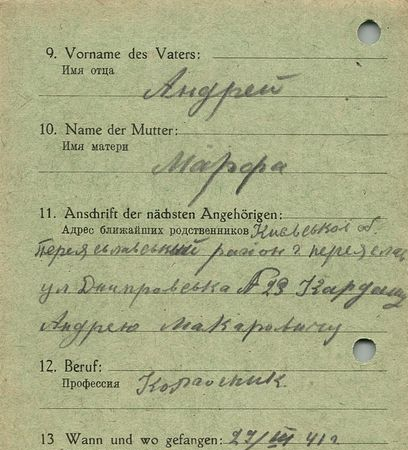 9. Vorname des Vaters:
Имя отца
Андрей
10. Name der Mutter:
Имя матери
Марфа
11. Anschrift der nächsten Angehörigen:
Адрес ближайших родственников Киевськоі об.
Переяславський район г. переяслав
ул Днипровська № 29 Кардашу
Андрею Макаровичу
12. Beruf:
Профессия Колхосник
13 Wann und wo gefangen: 27/III 41 г